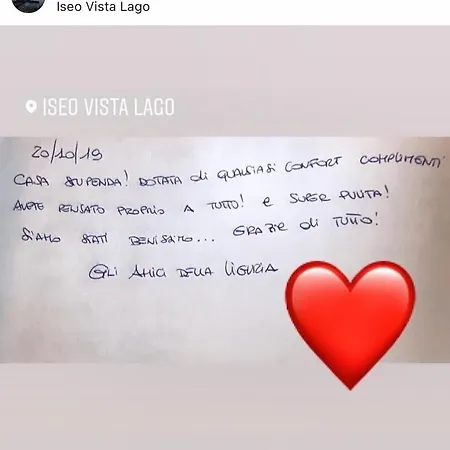 Iseo Vista Lago
ISEO VISTA LAGO
20/10/19
CASA STUPENDA! DOTATA di QUALSIASI CONFORT COMPLIMENTI
AVETE PENSATO PROPRIO A TUTTO! E SUPER PULITA!
SIAMO STATI BENISSIMO... GRAZIE di TUTTO!
GLI AMICI DELLA LIGURIA